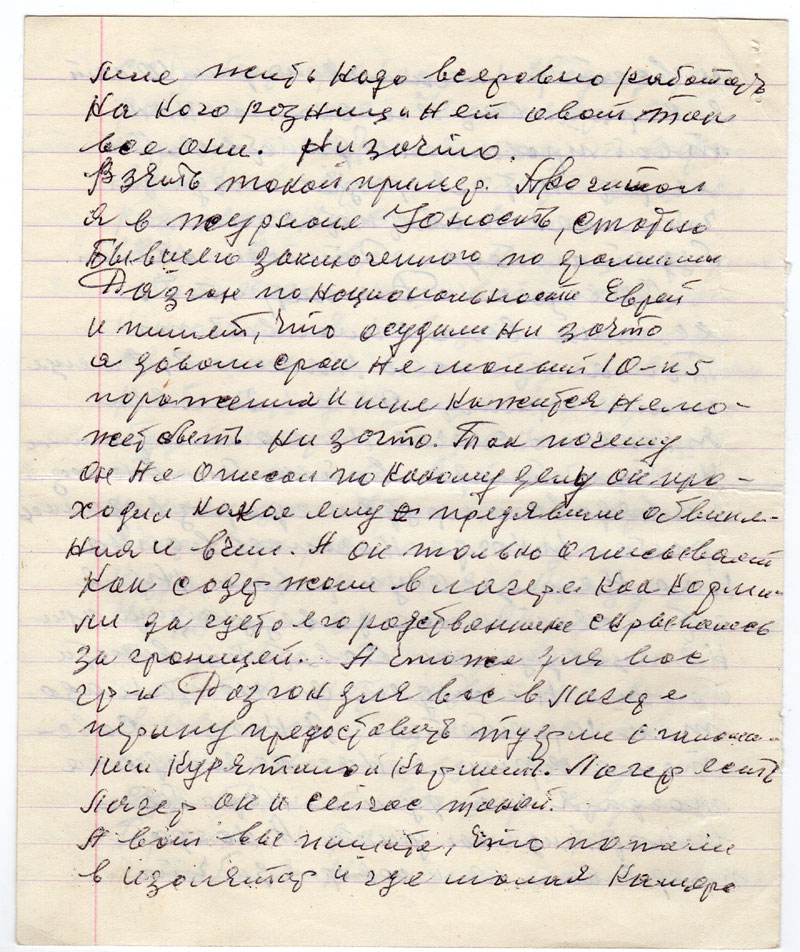 мне жить надо всеровно работать
на кого розницы нет а вот так
все они. Ни зачто.
Взять такой пример. Прочитал
я в журнале Юность, статью
Бывшего заключенного по фамилии
Разгон по национальности Еврей
и пишет, что осудили ни зачто
а давали срок не малый 10-и 5
поражения и мне кажится немо-
жет быть ни зачто. Так почему
он не описал по какому делу он про-
ходил какое ему предявили обвине-
ния и в чем. А он только описывает
как содержали в лагере как корми-
ли за где то его родственники скрывались
за границей. А что же для вас
гр-н Разгон для вас в лагере
перину предоставить туфли с
Курятиной кормить. Лагер есть
Лагер он и сейчас такой.
А вот вы пишите, что попали
в изолятор и где малая камера